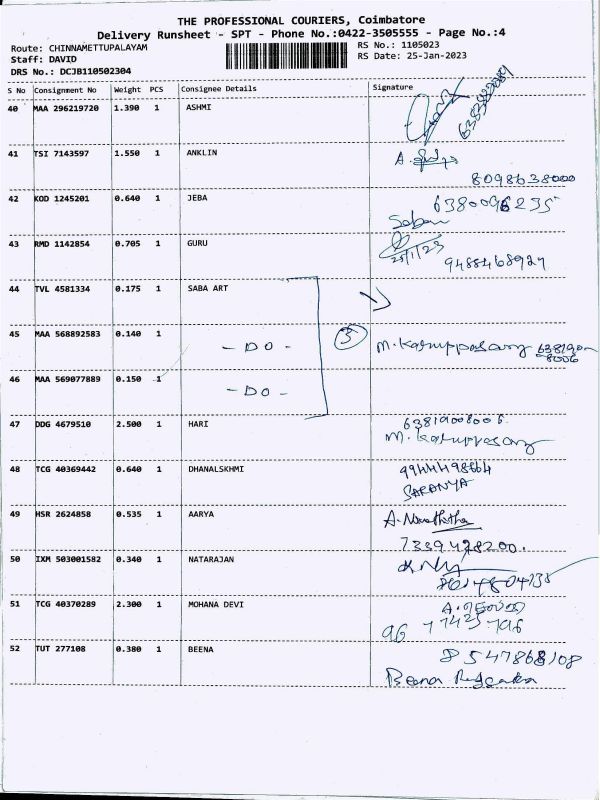 THE PROFESSIONAL COURIERS, Coimbatore
Delivery Runsheet - SPT - Phone No.:0422-3505555 - Page No.:4
Route: CHINNAMETTUPALAYAM RS No.: 1105023
Staff: DAVID RS Date: 25-Jan-2023
DRS No.: DCJB110502304
S No Consignment No Weight PCS Consignee Details Signature
40 MAA 296219720 1.390 1 ASHMI
41 TSI 7143597 1.550 1 ANKLIN A.
8098638000
42 KOD 1245201 0.640 1 JEBA 6380096235
43 RMD 1142854 0.705 1 GURU
25/1/23 9488468927
44 TVL 4581334 0.175 1 SABA ART
45 MAA 568892583 0.140 1 - DO - 3 M. Karuppasamy 638190
08006
46 MAA 569077889 0.150 1 - DO -
47 DDG 4679510 2.500 1 HARI 63819008006
M. Karuppasamy
48 TCG 40369442 0.640 1 DHANALSKHMI 9944498664
SARANYA
49 HSR 2624858 0.535 1 AARYA A.
7339428200.
50 IXM 503001582 0.340 1 NATARAJAN
51 TCG 40370289 2.300 1 MOHANA DEVI A.
96 77425796
52 TUT 277108 0.380 1 BEENA 8547868108
Beena